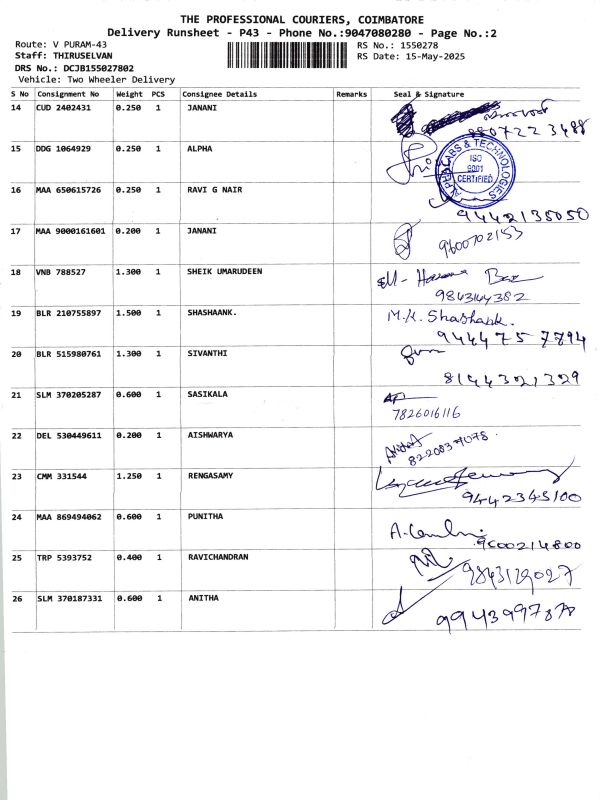 THE PROFESSIONAL COURIERS, COIMBATORE
Delivery Runsheet - P43 - Phone No.:9047080280 - Page No.:2
Route: V PURAM-43
RS No.: 1550278
Staff: THIRUSELVAN
RS Date: 15-May-2025
DRS No.: DCJB155027802
Vehicle: Two Wheeler Delivery
S No Consignment No Weight PCS Consignee Details Remarks Seal & Signature
14 CUD 2402431 0.250 1 JANANI
15 DDG 1064929 0.250 1 ALPHA
ALPHA LABS & TECHNOLOGIES
ISO
9001
CERTIFIED
16 MAA 650615726 0.250 1 RAVI G NAIR
9442135050
17 MAA 9000161601 0.200 1 JANANI
9600702153
18 VNB 788527 1.300 1 SHEIK UMARUDEEN
9843144382
19 BLR 210755897 1.500 1 SHASHAANK. M.K. Shashank.
9444757794
20 BLR 515980761 1.300 1 SIVANTHI
8144321329
21 SLM 370205287 0.600 1 SASIKALA
7826016116
22 DEL 530449611 0.200 1 AISHWARYA
23 CMM 331544 1.250 1 RENGASAMY
9442345100
24 MAA 869494062 0.600 1 PUNITHA
9500214800
25 TRP 5393752 0.400 1 RAVICHANDRAN
9843129027
26 SLM 370187331 0.600 1 ANITHA